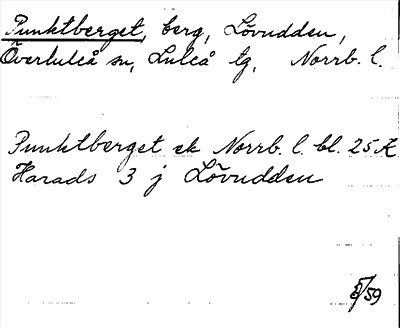 Punktberget, berg, Lövudden,
Överluleå sn, Luleå tg, Norrb. l.
Punktberget ek Norrb. l. bl. 25 K
Harads 3 j Lövudden
/59